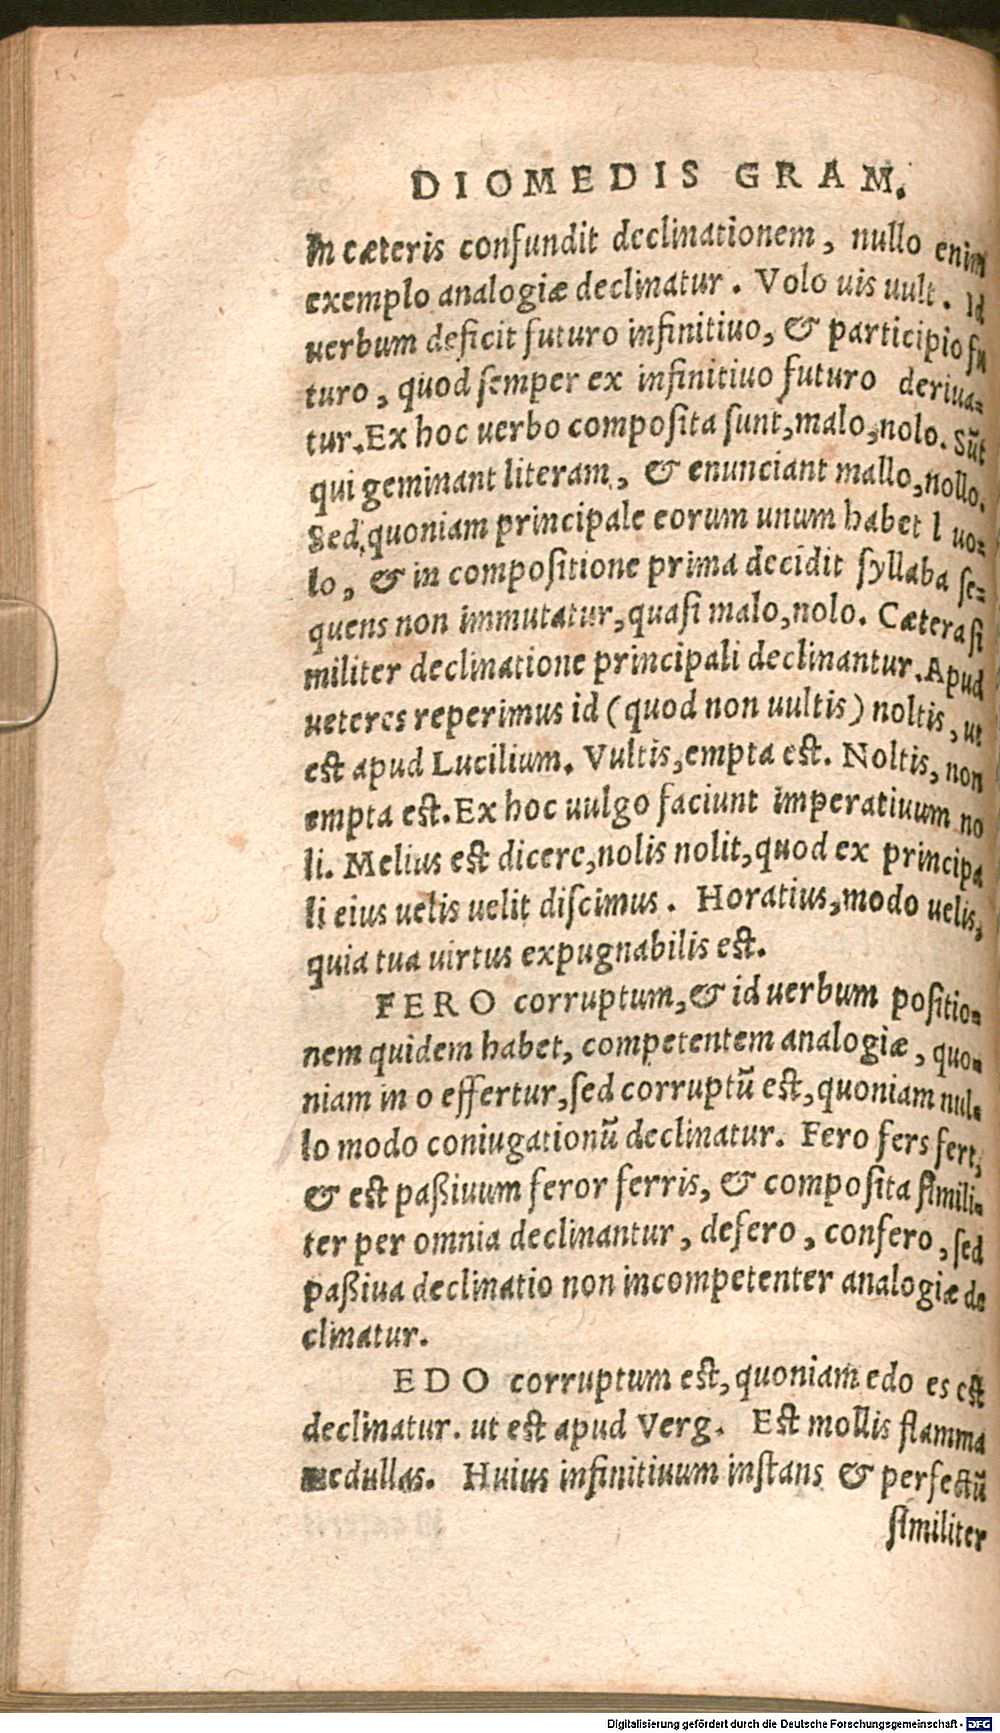 DIOMEDIS GRAM.
In cæteris confundit declinationem, nullo enim
exemplo analogiæ declinatur. Volo uis uult. Id
uerbum deficit futuro infinitiuo, & participio fu
turo, quod semper ex infinitiuo futuro deriua-
tur. Ex hoc uerbo composita sunt, malo, nolo. Sūt
qui geminant literam, & enunciant mallo, nollo.
Sed, quoniam principale eorum unum habet l uo-
lo, & in compositione prima decidit syllaba se-
quens non immutatur, quasi malo, nolo. Cætera si
militer declinatione principali declinantur. Apud
ueteres reperimus id (quod non uultis) noltis, ut
est apud Lucilium. Vultis, empta est. Noltis, non
empta est. Ex hoc uulgo faciunt imperatiuum no
li. Melius est dicere, nolis nolit, quod ex principa
li eius uelis uelit discimus. Horatius, modo uelis,
quia tua uirtus expugnabilis est.
FERO corruptum, & id uerbum positio-
nem quidem habet, competentem analogiæ, quo-
niam in o effertur, sed corruptū est, quoniam nul-
lo modo coniugationū declinatur. Fero fers fert,
& est paßiuum feror ferris, & composita simili-
ter per omnia declinantur, defero, confero, sed
paßiua declinatio non incompetenter analogiæ de
clinatur.
EDO corruptum est, quoniam edo es est
declinatur. ut est apud Verg. Est mollis flamma
medullas. Huius infinitiuum instans & perfectū
similiter
Digitalisierung gefördert durch die Deutsche Forschungsgemeinschaft - DFG